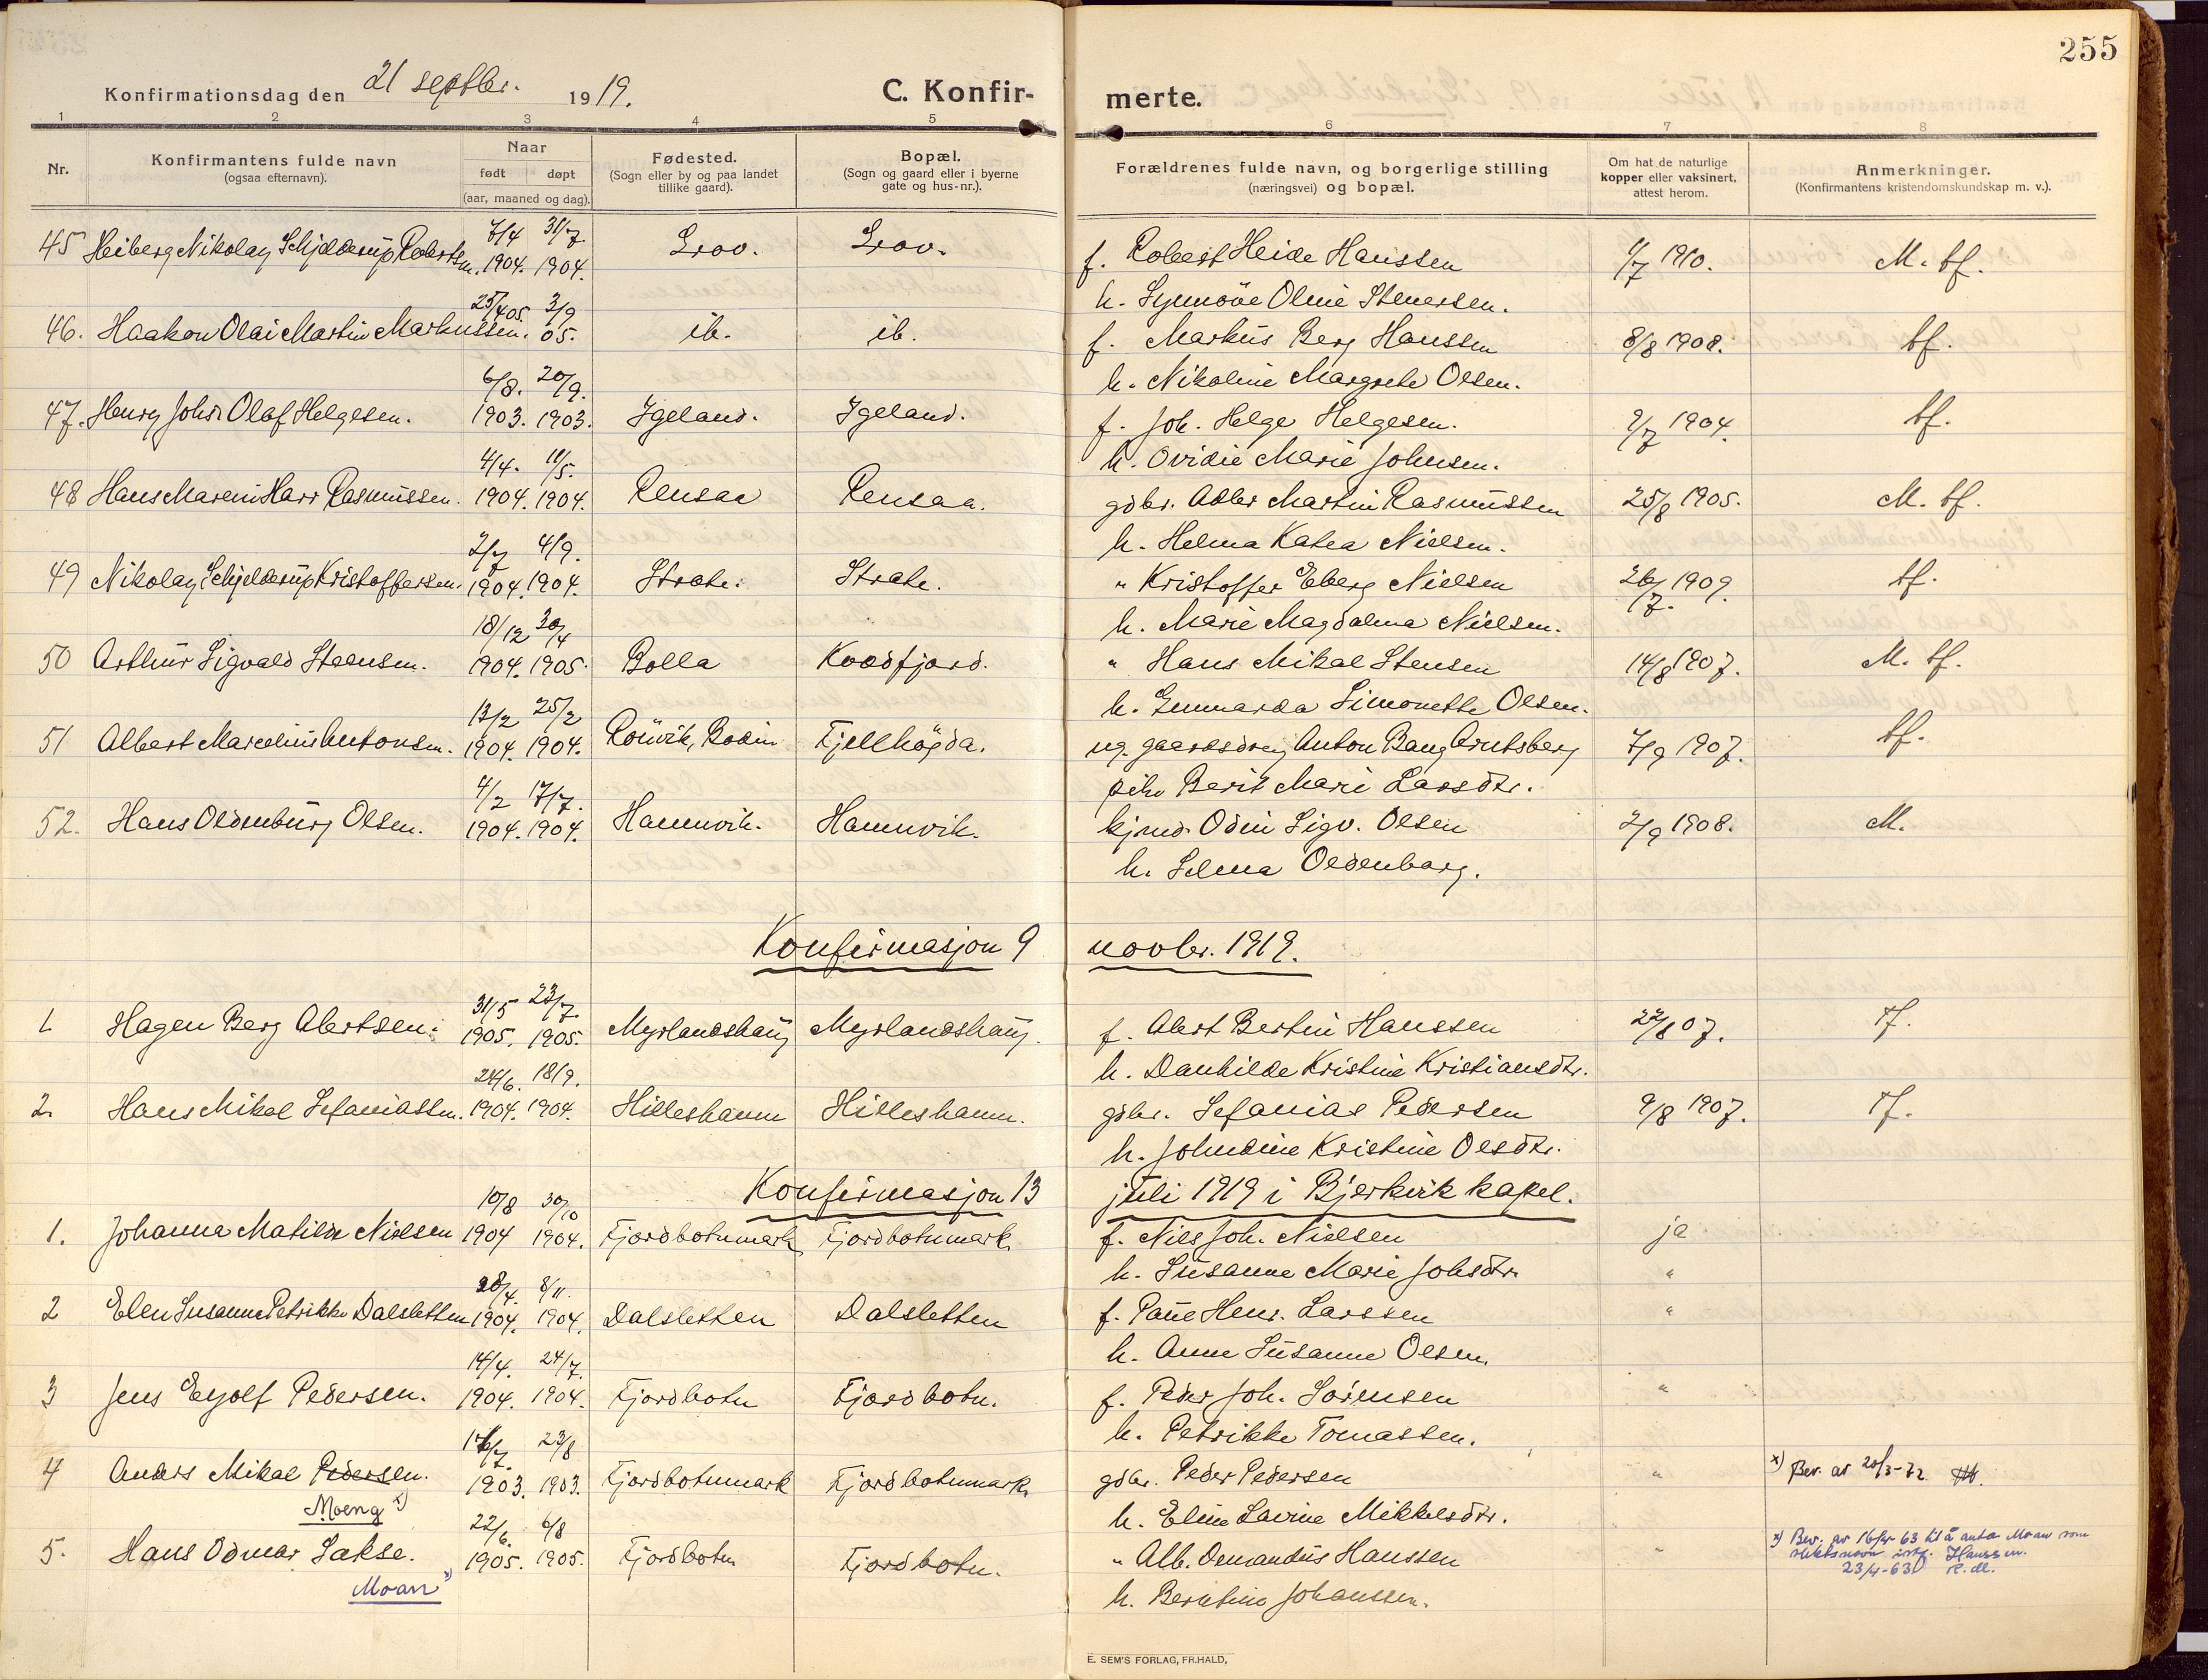 255
Konfirmationsdag den 21 septbr. 1919.
C. Konfirmerte.
1 2 3 4 5 6 7 8
Nr.
Konfirmantens fulde navn
(ogsaa efternavn).
Naar
født døpt
(aar, maaned og dag).
Fødested.
(Sogn eller by og paa landet
tillike gaard).
Bopæl.
(Sogn og gaard eller i byerne
gate og hus-nr.).
Forældrenes fulde navn, og borgerlige stilling
(næringsvei) og bopæl.
Om hat de naturlige
kopper eller vaksinert,
attest herom.
Anmerkninger.
(Konfirmantens kristendomskundskap m. v.).
7/4 31/7.
45 Heiberg Nikolay Schjelderup Robertsen. 1904. 1904. Grov. Grov. f. Robert Heide Hanssen 1/7 1910. M. tf.
h. Synnöve Oline Stenersen.
25/4 05. 3/9
46. Haakon Olai Martin Markussen. 05. ib. ib. f. Markus Berg Hanssen 8/8 1908. tf.
h. Nikoline Margrete Olsen.
6/8. 20/9.
47. Henry Johan Olaf Helgesen. 1903. 1903. Igeland. Igeland. f. Joh. Helge Helgesen. 9/7 1904. tf.
h. Ovidie Marie Johnsen.
4/4. 11/5.
48 Hans Mareni Harr Rasmussen. 1904. 1904. Rensaa Rensaa. gdbr. Adler Martin Rasmussen 25/8 1905. M. tf.
h. Helma Katea Nielsen.
2/7 4/9.
49 Nikolay Schjelderup Kristoffersen. 1904. 1904. Strate. Strate. " Kristoffer Eberg Nielsen 26/7. 1909. tf.
h. Marie Magdalena Nielsen.
18/12 30/4
50 Arthur Sigvald Steensen. 1904. 1905. Bolla Kvædfjord. " Hans Mikal Stensen 14/8 1907. M. tf.
h. Gunnarda Simonette Olsen.
13/2 25/2
51 Albert Marcelius Antonsen. 1904. 1904. Rönvik, Bodin Fjellhögda. ug. gaardsdreng Anton Bang Arntsberg 7/9 1907. tf.
pike Berit Marie Larsdtr.
4/2 17/7.
52. Hans Oldenburg Olsen. 1904. 1904. Hamnvik. Hamnvik. kjmd. Odin Sigv. Olsen 2/9 1908. M.
h. Selma Oldenborg.
Konfirmasjon 9 novbr. 1919.
31/5 23/7.
1. Hagen Berg Abertsen. 1905. 1905. Myrlandshaug Myrlandshaug. f. Abert Bertin Hanssen 22/8 07. Tf.
h. Danhilde Kristine Kristiansdtr.
24/6. 18/9.
2. Hans Mikal Sefaniassen. 1904. 1904. Hilleshamn Hilleshamn. gdbr. Sefanias Pedersen 9/8 1907. Tf.
h. Johndine Kristine Olsdtr.
Konfirmasjon 13 juli 1919 i Bjerkvik kapel.
10/8 30/10
1. Johanna Matilde Nielsen 1904 1904. Fjordbotnmark Fjordbotnmark. f. Niels Joh. Nielsen ja
h. Susanne Marie Johsdtr. "
28/4. 8/11.
2 Elen Susanna Petrikke Dalsletten 1904. 1904. Dalsletten Dalsletten f. Paul Henr. Larssen "
h. Anne Susanne Olsen.
14/4. 24/7.
3 Jens Eyolf Pedersen. 1904. 1904. Fjordbotn Fjordbotn. f. Peder Joh. Sörensen "
h. Petrikke Tomassen.
16/7. 23/8
4 Anders Mikal Pedersen. 1903. 1903. Fjordbotnmark Fjordbotnmark. gdbr. Peder Pedersen " x) Bev. av 20/3-72
Moeng x)
h. Eline Lavine Mikkelsdtr.
22/6. 6/8
5. Hans Odmar Sakse. 1905. 1905. Fjordbotn Fjordbotn. " Alb. Osmandus Hanssen " x) Bev. av 16/4-63 til å anta Moan som
slektsnavn istf. Hanssen.
23/4-63 R.M.
Moan x)
h. Berntine Johanssen.
E. SEM'S FORLAG, FR.HALD,